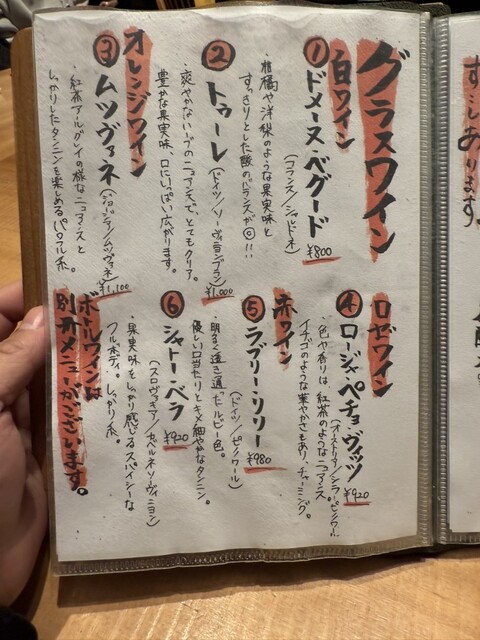 グラスワイン
白ワイン
① ドメーヌ・ベグード
(フランス/シャルドネ)
¥800
・柑橘や洋梨のような果実味と
すっきりとした酸のバランスが◎!!
② トゥーレ
(ドイツ/ソーヴィニヨンブラン)
¥1,000
・爽やかなハーブのニュアンスで、とてもクリア。
豊かな果実味、口にいっぱい広がります。
オレンジワイン
③ ムツヴァネ
(ジョージア/ムツヴァネ)
¥1,100
・紅茶アールグレイの様なニュアンスと
しっかりしたタンニンを楽しめるパワフル系。
ロゼワイン
④ ロージャ・ペチョヴィッツ
(オーストリア/シラー、ピノノワール)
¥920
・色や香りは、紅茶のようなニュアンス
イチゴのような華やかさもあり、チャーミング。
赤ワイン
⑤ ラブリー・リリー
(ドイツ/ピノノワール)
¥980
・明るく透き通ったルビー色。
優しい口当たりとキメ細やかなタンニン。
⑥ シャトー・ベラ
(スロヴァキア/カベルネソーヴィニヨン)
¥920
・果実味をしっかり感じるスパイシーな
フルボディ。しっかり系。
ボトルワインは
別冊メニューがございます。